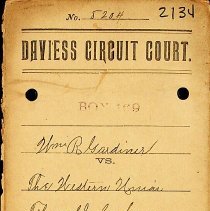 No. 5204 2134
DAVIESS CIRCUIT COURT.
BOX 169
Wm R Gardiner
VS.
The Western Union